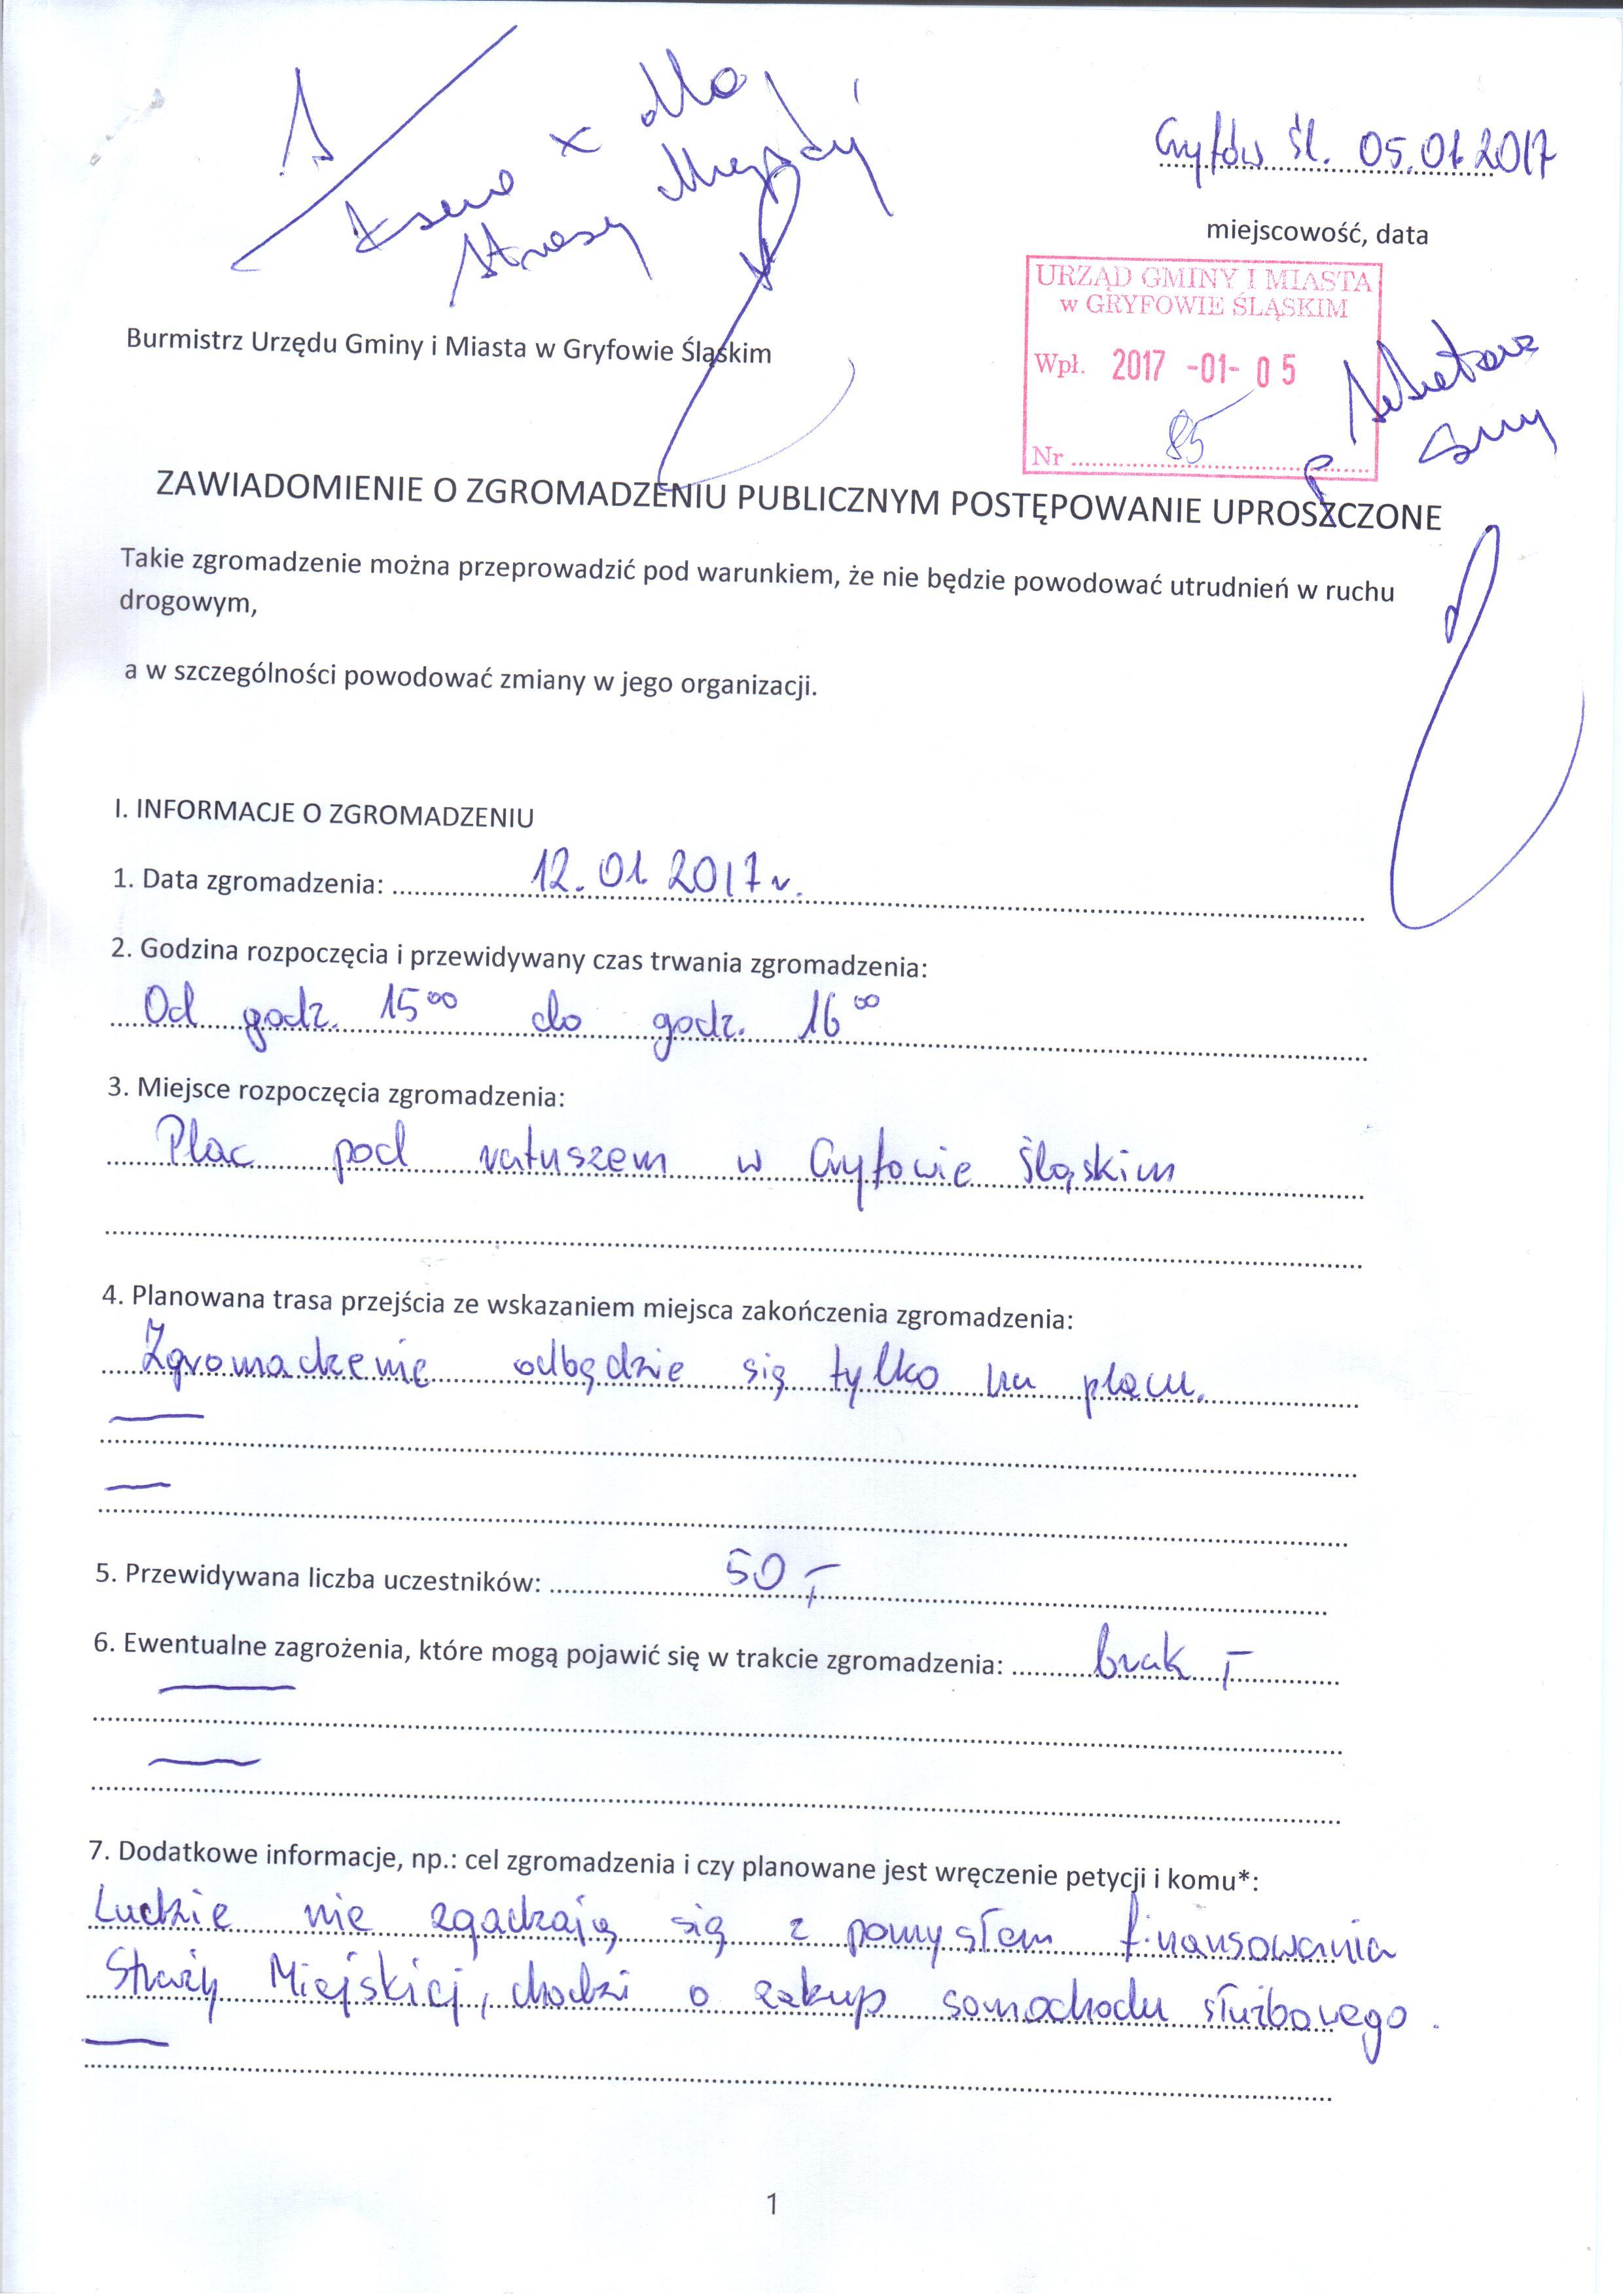 Ksero x dla
Straży Miejskiej
Gryfów Śl. 05.01.2017
miejscowość, data
URZĄD GMINY I MIASTA
w GRYFOWIE ŚLĄSKIM
Wpł. 2017 -01- 05
Nr 85
P. Sekretarz
Gminy
Burmistrz Urzędu Gminy i Miasta w Gryfowie Śląskim
ZAWIADOMIENIE O ZGROMADZENIU PUBLICZNYM POSTĘPOWANIE UPROSZCZONE
Takie zgromadzenie można przeprowadzić pod warunkiem, że nie będzie powodować utrudnień w ruchu
drogowym,
a w szczególności powodować zmiany w jego organizacji.
I. INFORMACJE O ZGROMADZENIU
1. Data zgromadzenia: 12.01.2017 r.
2. Godzina rozpoczęcia i przewidywany czas trwania zgromadzenia:
Od godz. 15⁰⁰ do godz. 16⁰⁰
3. Miejsce rozpoczęcia zgromadzenia:
Plac pod ratuszem w Gryfowie Śląskim
4. Planowana trasa przejścia ze wskazaniem miejsca zakończenia zgromadzenia:
Zgromadzenie odbędzie się tylko na placu.
5. Przewidywana liczba uczestników: 50,-
6. Ewentualne zagrożenia, które mogą pojawić się w trakcie zgromadzenia: brak,-
7. Dodatkowe informacje, np.: cel zgromadzenia i czy planowane jest wręczenie petycji i komu*:
Ludzie nie zgadzają się z pomysłem finansowania
Straży Miejskiej, chodzi o zakup samochodu służbowego.
1